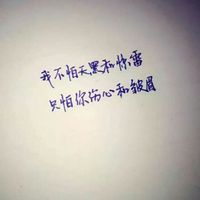 我不怕天黑和惊雷
只怕你伤心和皱眉